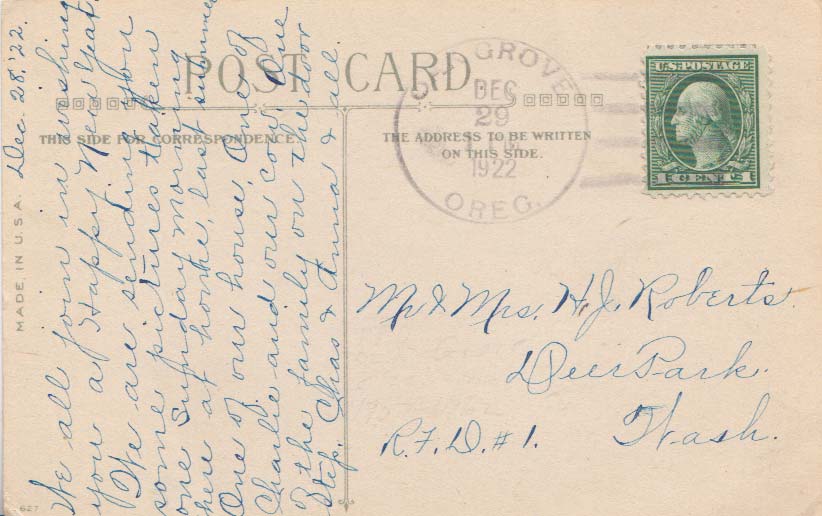 POST CARD
THIS SIDE FOR CORRESPONDENCE
THE ADDRESS TO BE WRITTEN
ON THIS SIDE.
MADE IN U.S.A.
627
GROVE
DEC
29
1922
OREG.
U.S. POSTAGE
1 CENT 1
Dec. 28, '22.
We all join in wishing
you a Happy New Year.
We are sending you
some pictures taken
one Sunday morning
here at home, last summer
One of our house, One of
Charlie and our cow. One
of the family on the door
step. Chas & Anna & all.
Mr & Mrs. H. J. Roberts.
Deer Park.
R. F. D. # 1. Wash.